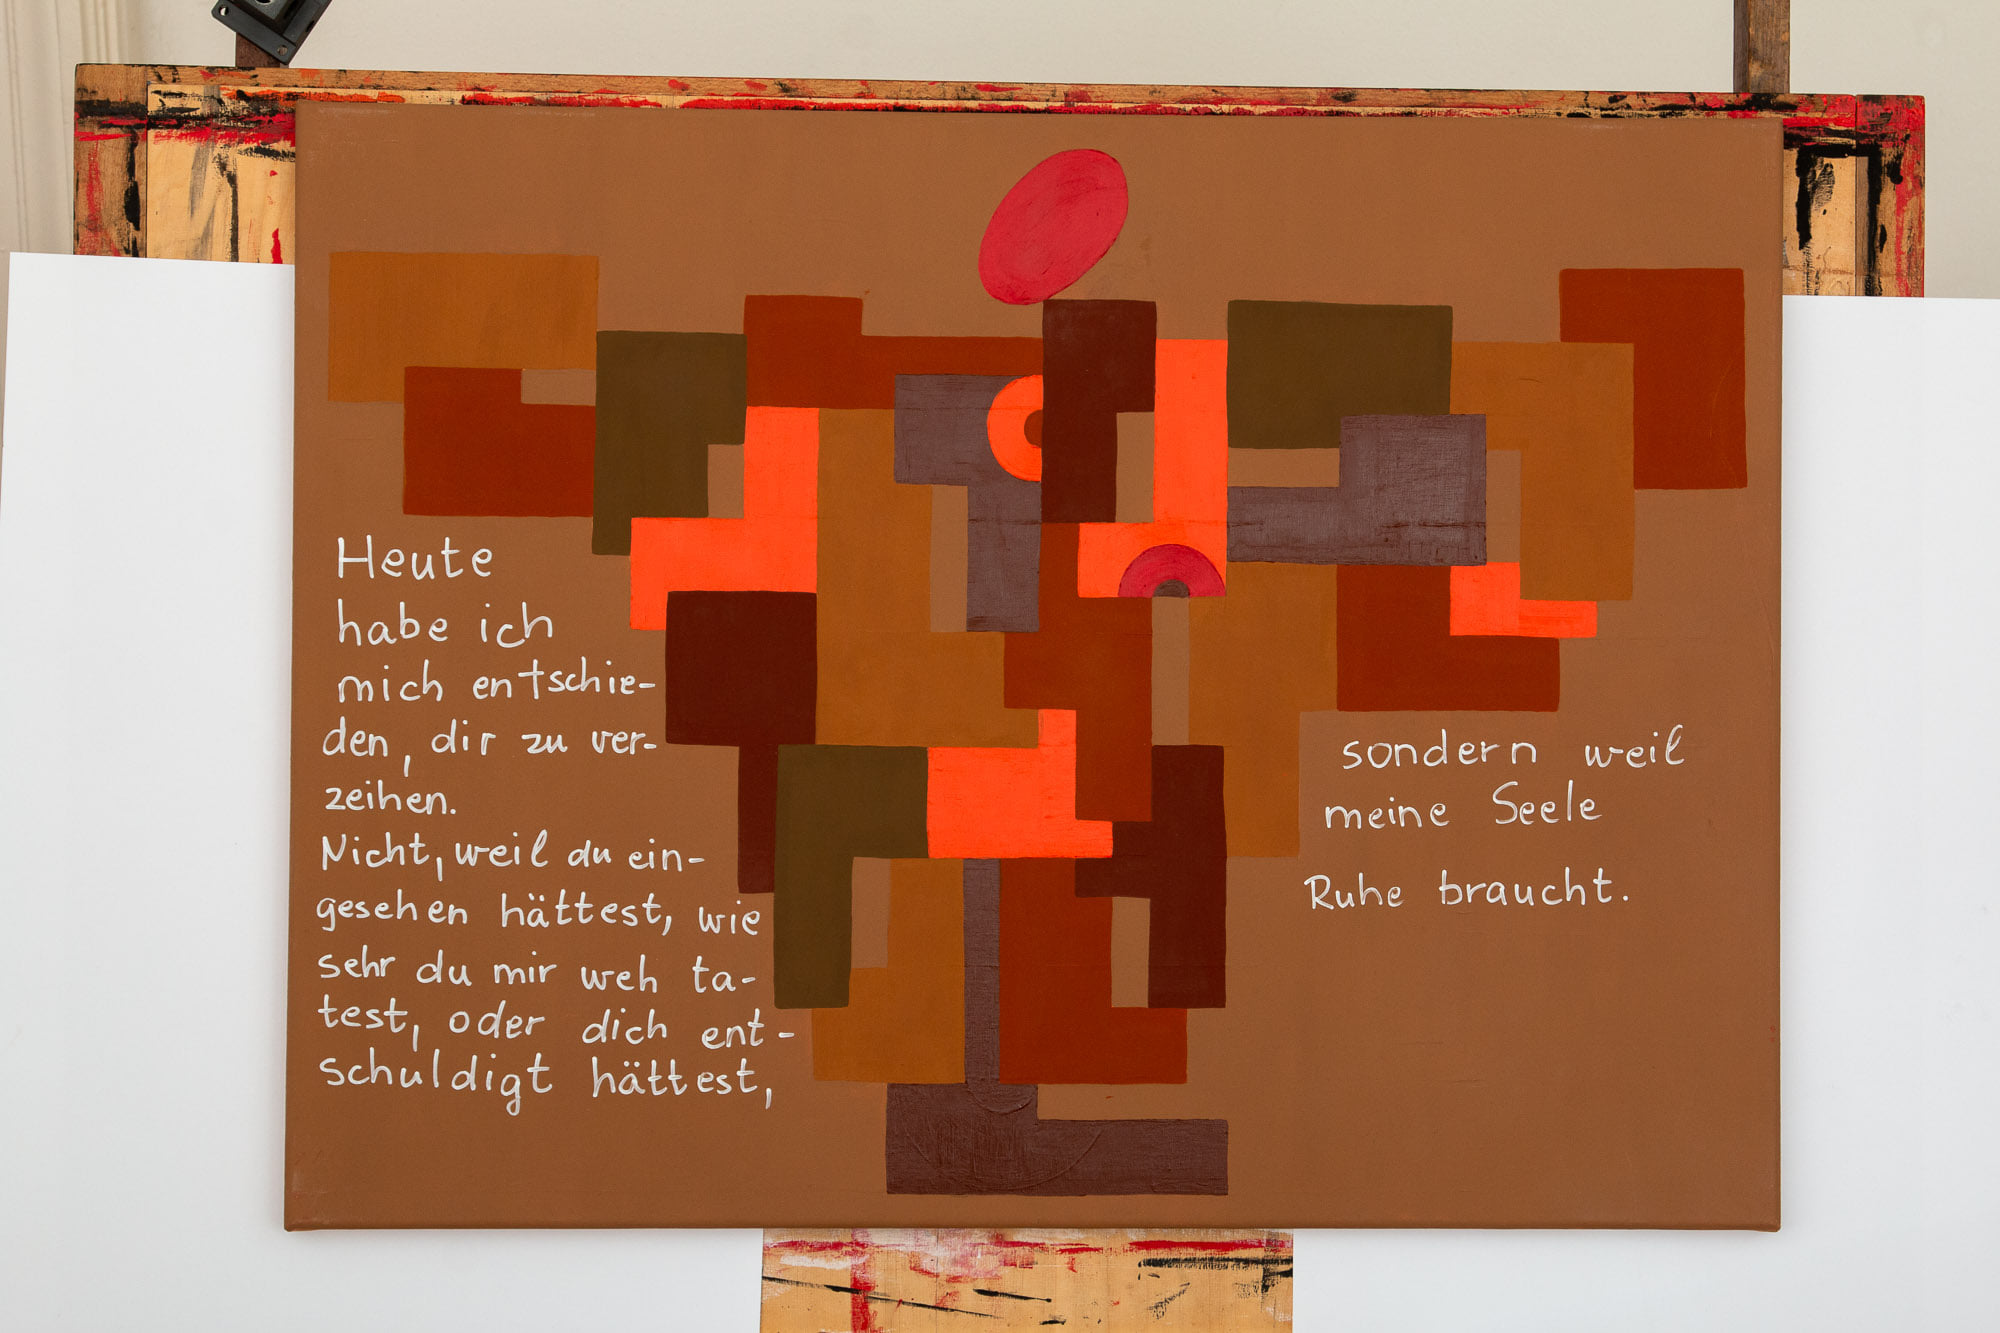 Heute
habe ich
mich entschie-
den, dir zu ver-
zeihen.
Nicht, weil du ein-
gesehen hättest, wie
sehr du mir weh ta-
test, oder dich ent-
schuldigt hättest,
sondern weil
meine Seele
Ruhe braucht.